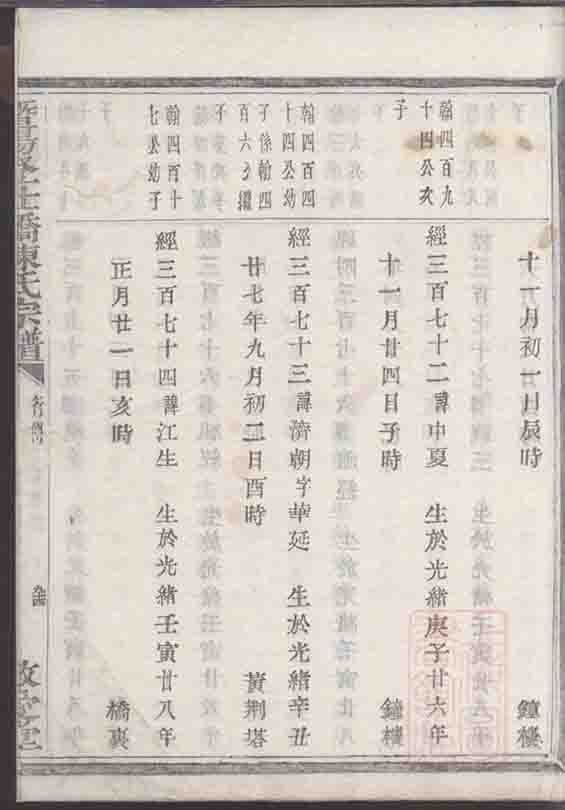 十一月初一日辰時 鐘樓
翰四百九
十四公次
子
經三百七十二諱中夏 生於光緒庚子廿六年
十一月廿四日子時 鐘樓
翰四百四
十四公幼
子係翰四
百六公繼
子
經三百七十三諱濟朝字華延 生於光緒辛丑
廿七年九月初三日酉時 黃荆塔
翰四百十
七公幼子
經三百七十四諱江生 生於光緒壬寅廿八年
正月廿一日亥時 橋裏
橋陳氏宗譜
行傳